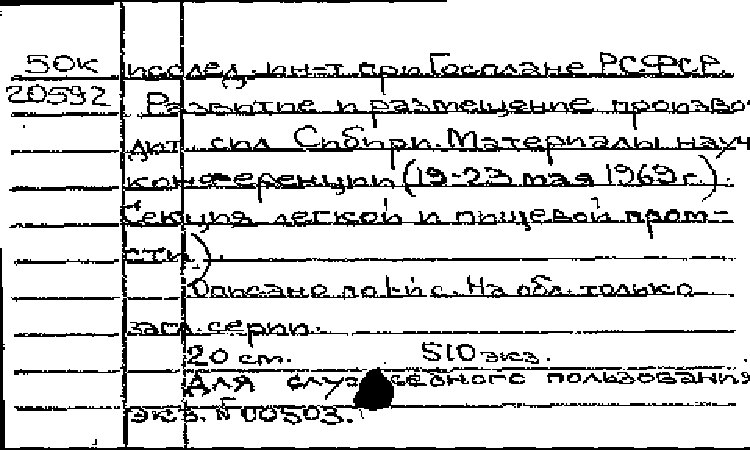 50к исслед. ин-т при Госплане РСФСР.
20592 Развитие и размещение произво
дит. сил Сибири. Материалы науч
конференции (19-23 мая 1969 г.).
Секция легкой и пищевой пром-
сти)
Описано по кн. с. На обл. только
загл. серии.
20 см. 510 экз.
Для служебного пользования
экз. № 00503.